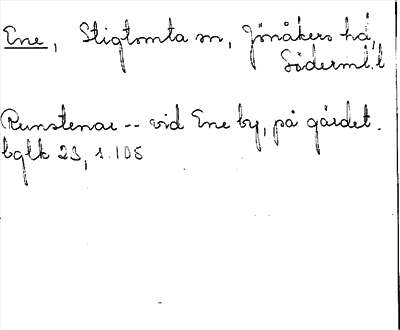 Ene, Stigtomta sn, Jönåkers hd,
Söderml. l
Runstenar -- vid Ene by, på gärdet.
bglk 23, s. 106